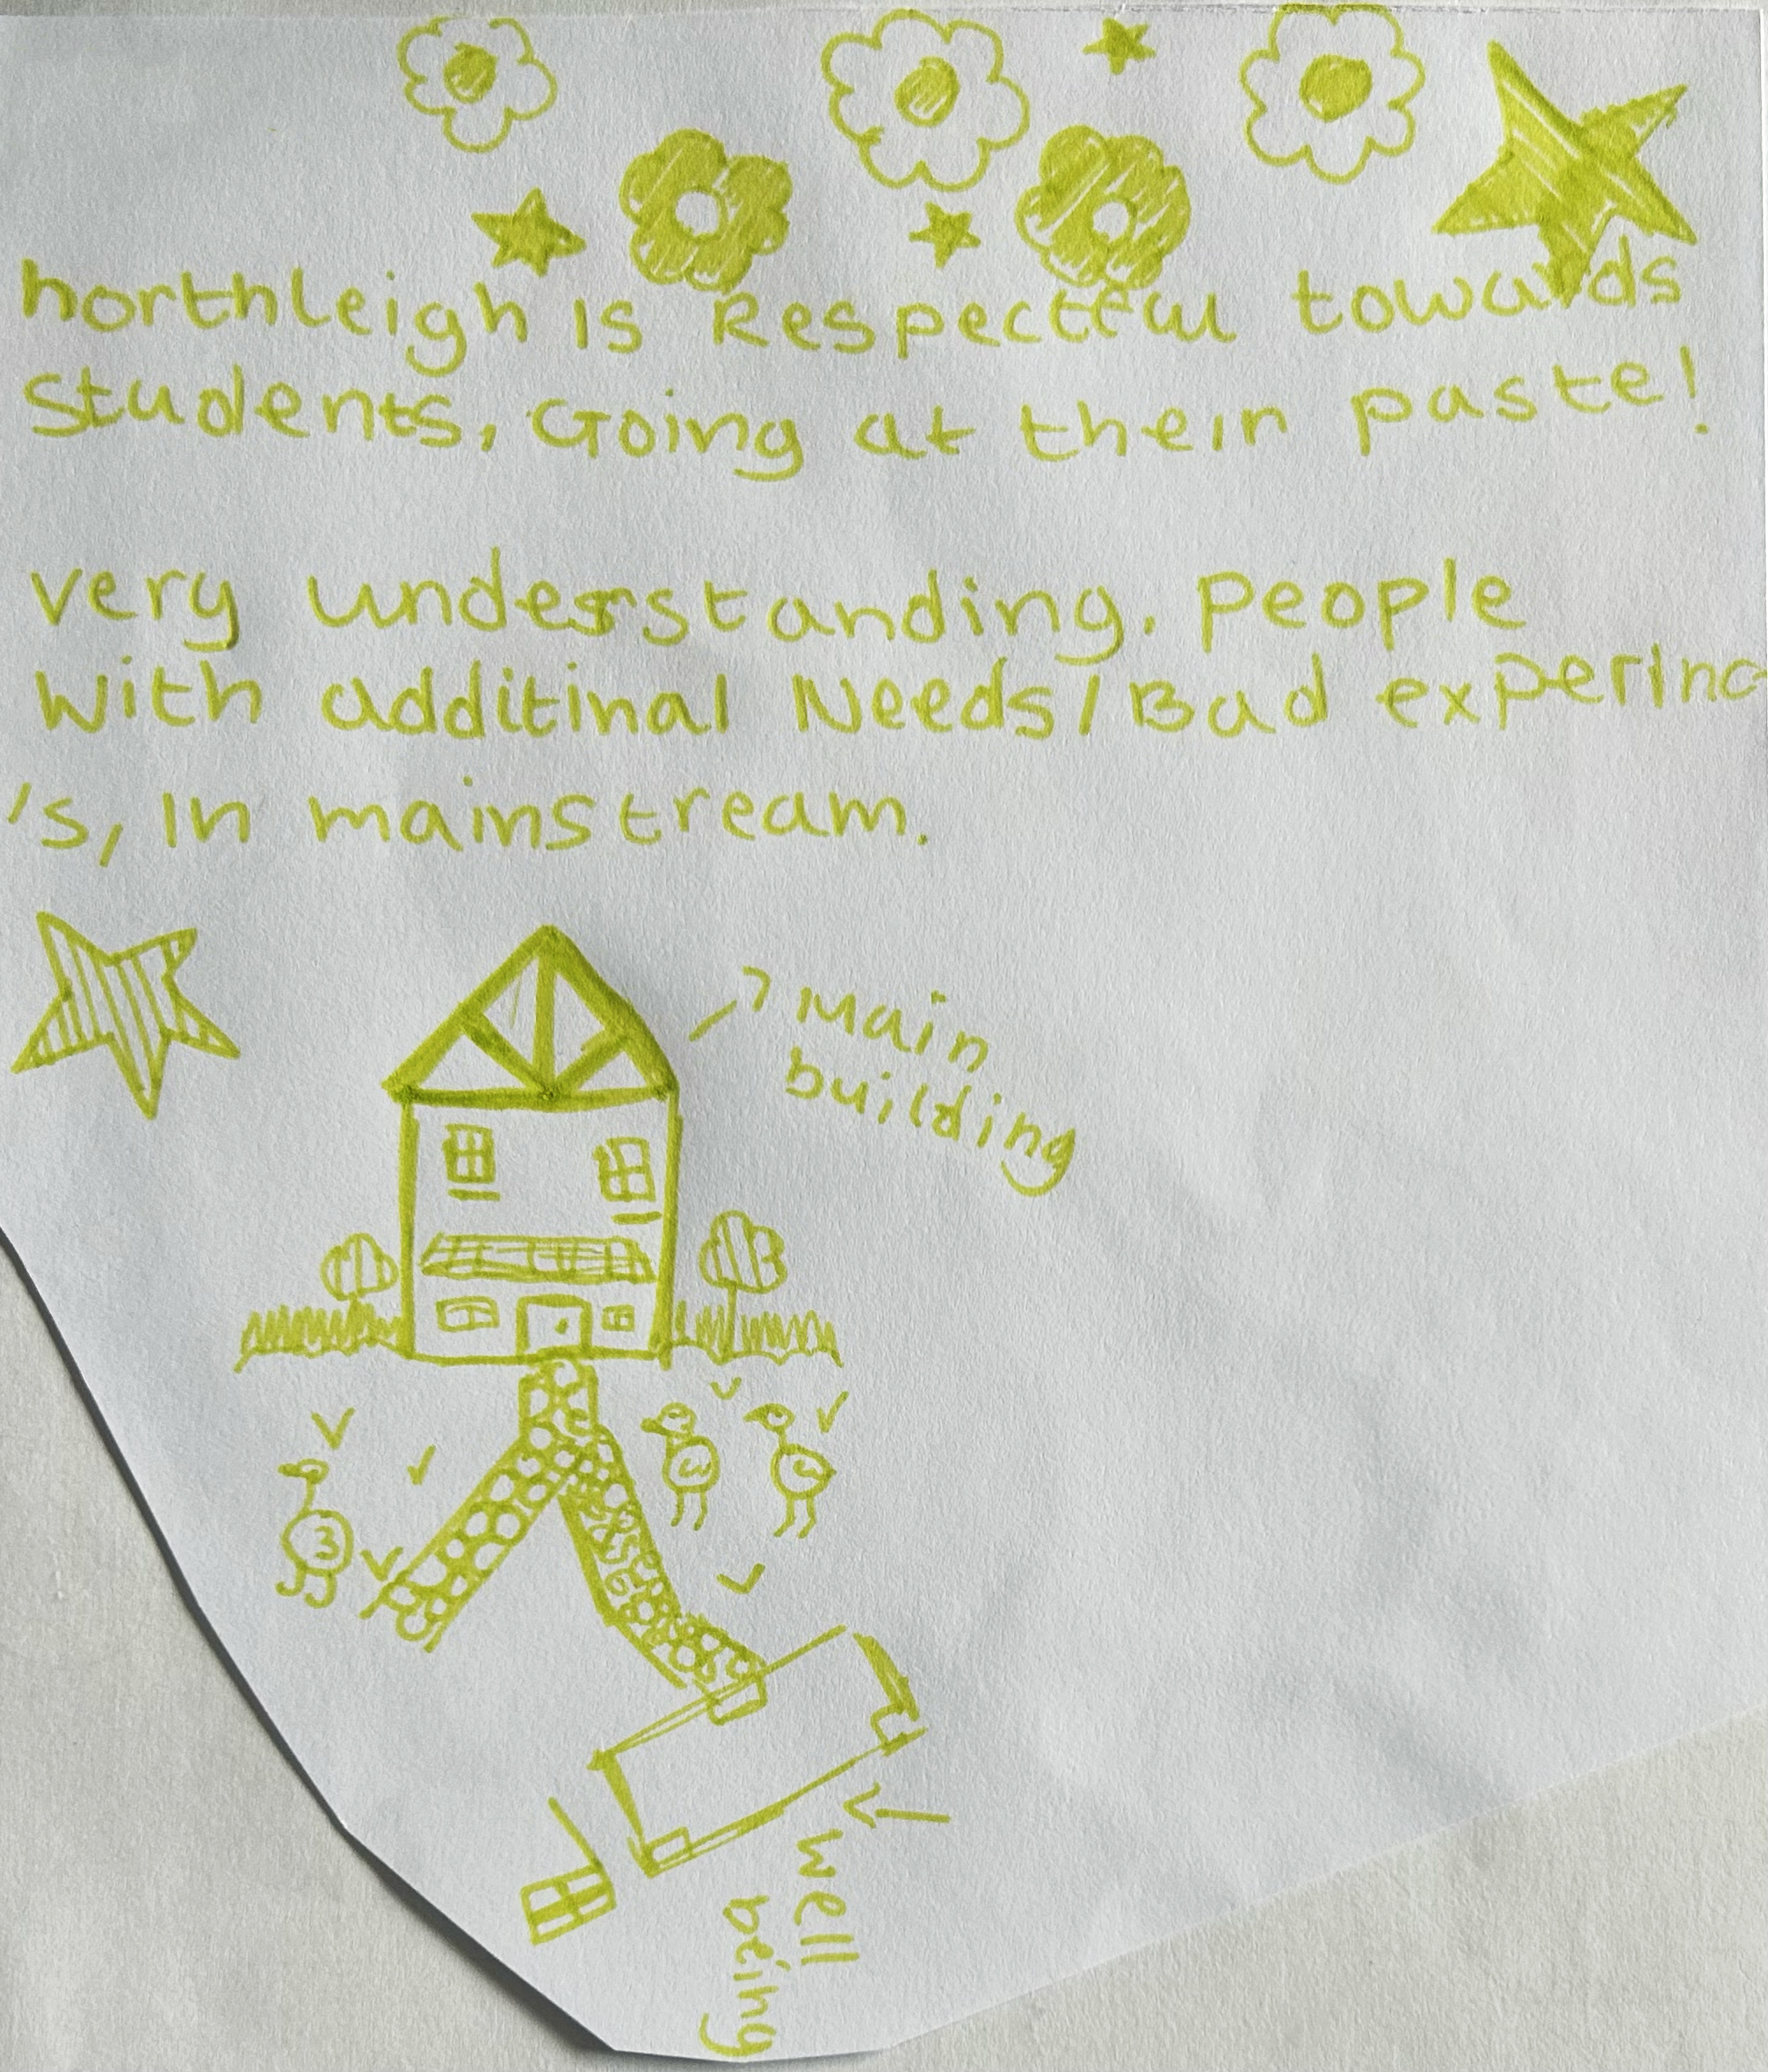 northleigh is Respectful towards
students, Going at their paste!
very understanding. people
With additinal Needs/Bad experinc
's, In mainstream.
Main
building
well
being